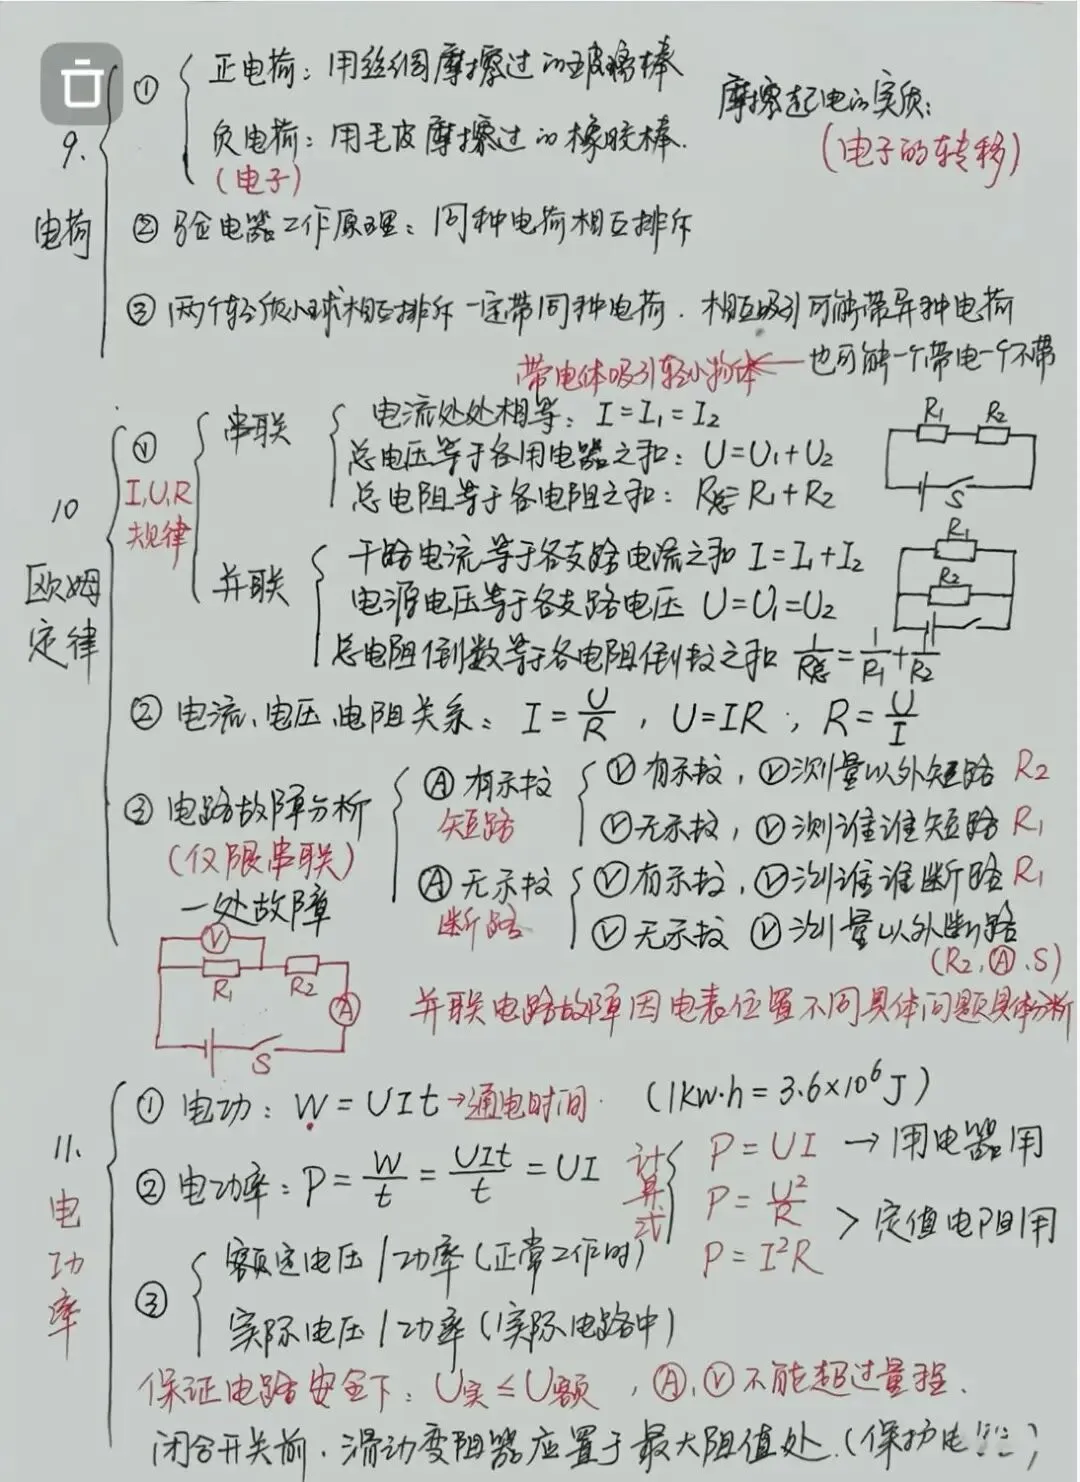 9.
电荷
① 正电荷：用丝绸摩擦过的玻璃棒
负电荷：用毛皮摩擦过的橡胶棒.
(电子)
摩擦起电的实质：
(电子的转移)
② 验电器工作原理：同种电荷相互排斥
③ 两个轻质小球相互排斥一定带同种电荷. 相互吸引可能带异种电荷
带电体吸引轻小物体 ← 也可能一个带电一个不带
10
欧姆
定律
① I,U,R
规律
串联
电流处处相等：I=I₁=I₂
总电压等于各用电器之和：U=U₁+U₂
总电阻等于各电阻之和：R总=R₁+R₂
R₁ R₂
S
并联
干路电流等于各支路电流之和 I=I₁+I₂
电源电压等于各支路电压 U=U₁=U₂
总电阻倒数等于各电阻倒数之和 1/R总=1/R₁+1/R₂
R₁
R₂
② 电流、电压、电阻关系：I=U/R，U=IR；R=U/I
③ 电路故障分析
(仅限串联)
一处故障
Ⓐ有示数
短路
Ⓥ有示数，Ⓥ测量以外短路 R₂
Ⓥ无示数，Ⓥ测谁谁短路 R₁
Ⓐ无示数
断路
Ⓥ有示数，Ⓥ测谁谁断路 R₁
Ⓥ无示数 Ⓥ测量以外断路
(R₂,Ⓐ,S)
V
R₁ R₂
A
S
并联电路故障因电表位置不同具体问题具体分析
11.
电
功
率
① 电功：W=UIt→通电时间. (1kw·h=3.6×10⁶J)
② 电功率：P=W/t=UIt/t=UI
计
算
式
P=UI → 用电器用
P=U²/R
P=I²R
> 定值电阻用
③ 额定电压/功率(正常工作时)
实际电压/功率(实际电路中)
保证电路安全下：U实≤U额，Ⓐ,Ⓥ不能超过量程.
闭合开关前，滑动变阻器应置于最大阻值处.(保护电